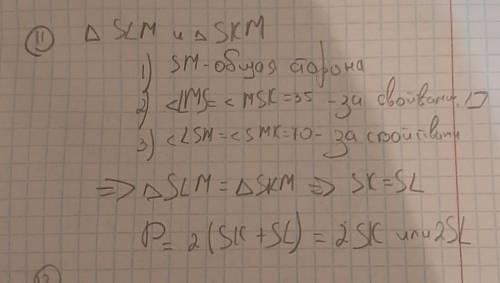 11 △ SLM и △ SKM
1) SM - общая сторона
2) <LMS = < MSK = 35 - за свойвами ▱
3) <LSM = < SMK = 70 - за свойствами
=> △ SLM = △ SKM => SK = SL
P = 2(SK + SL) = 2SK или 2SL